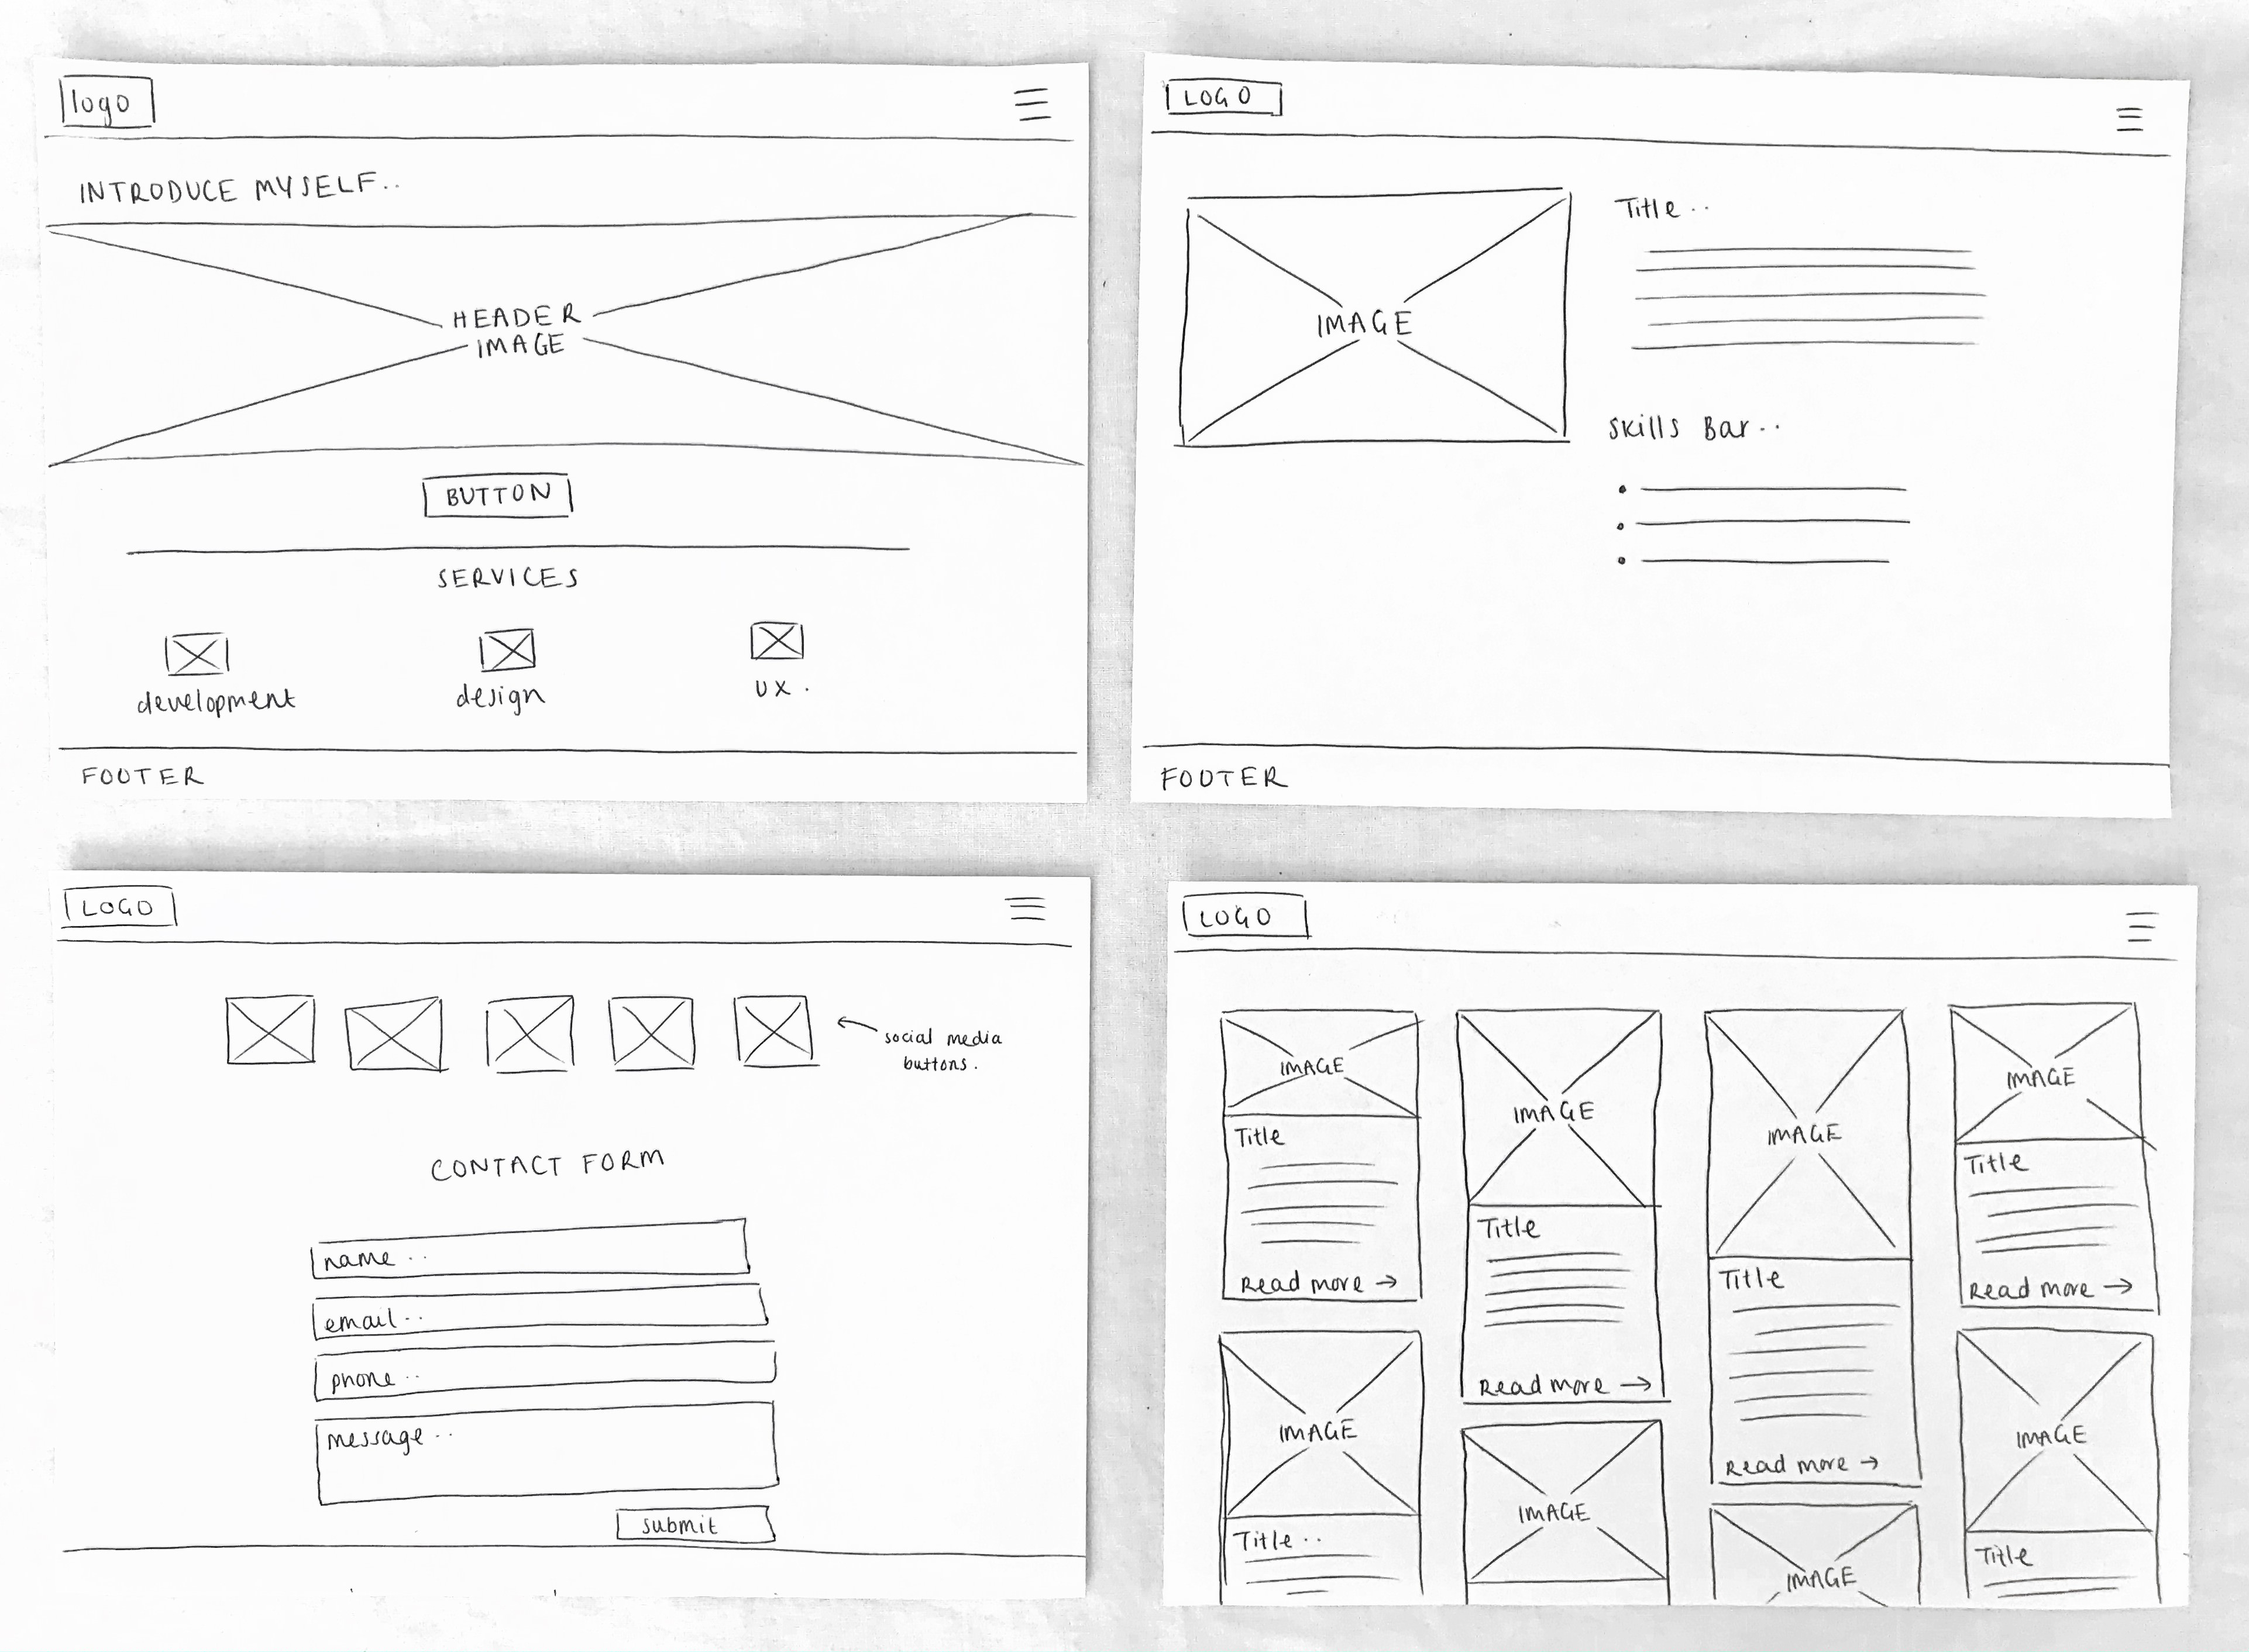 logo
INTRODUCE MYSELF..
HEADER
IMAGE
BUTTON
SERVICES
development
design
UX.
FOOTER
LOGO
IMAGE
Title..
Skills Bar..
FOOTER
LOGO
social media
buttons.
CONTACT FORM
name..
email..
phone..
message..
submit
LOGO
IMAGE
Title
Read more →
IMAGE
Title..
IMAGE
Title
Read more →
IMAGE
IMAGE
Title
Read more →
IMAGE
IMAGE
Title
Read more →
IMAGE
Title